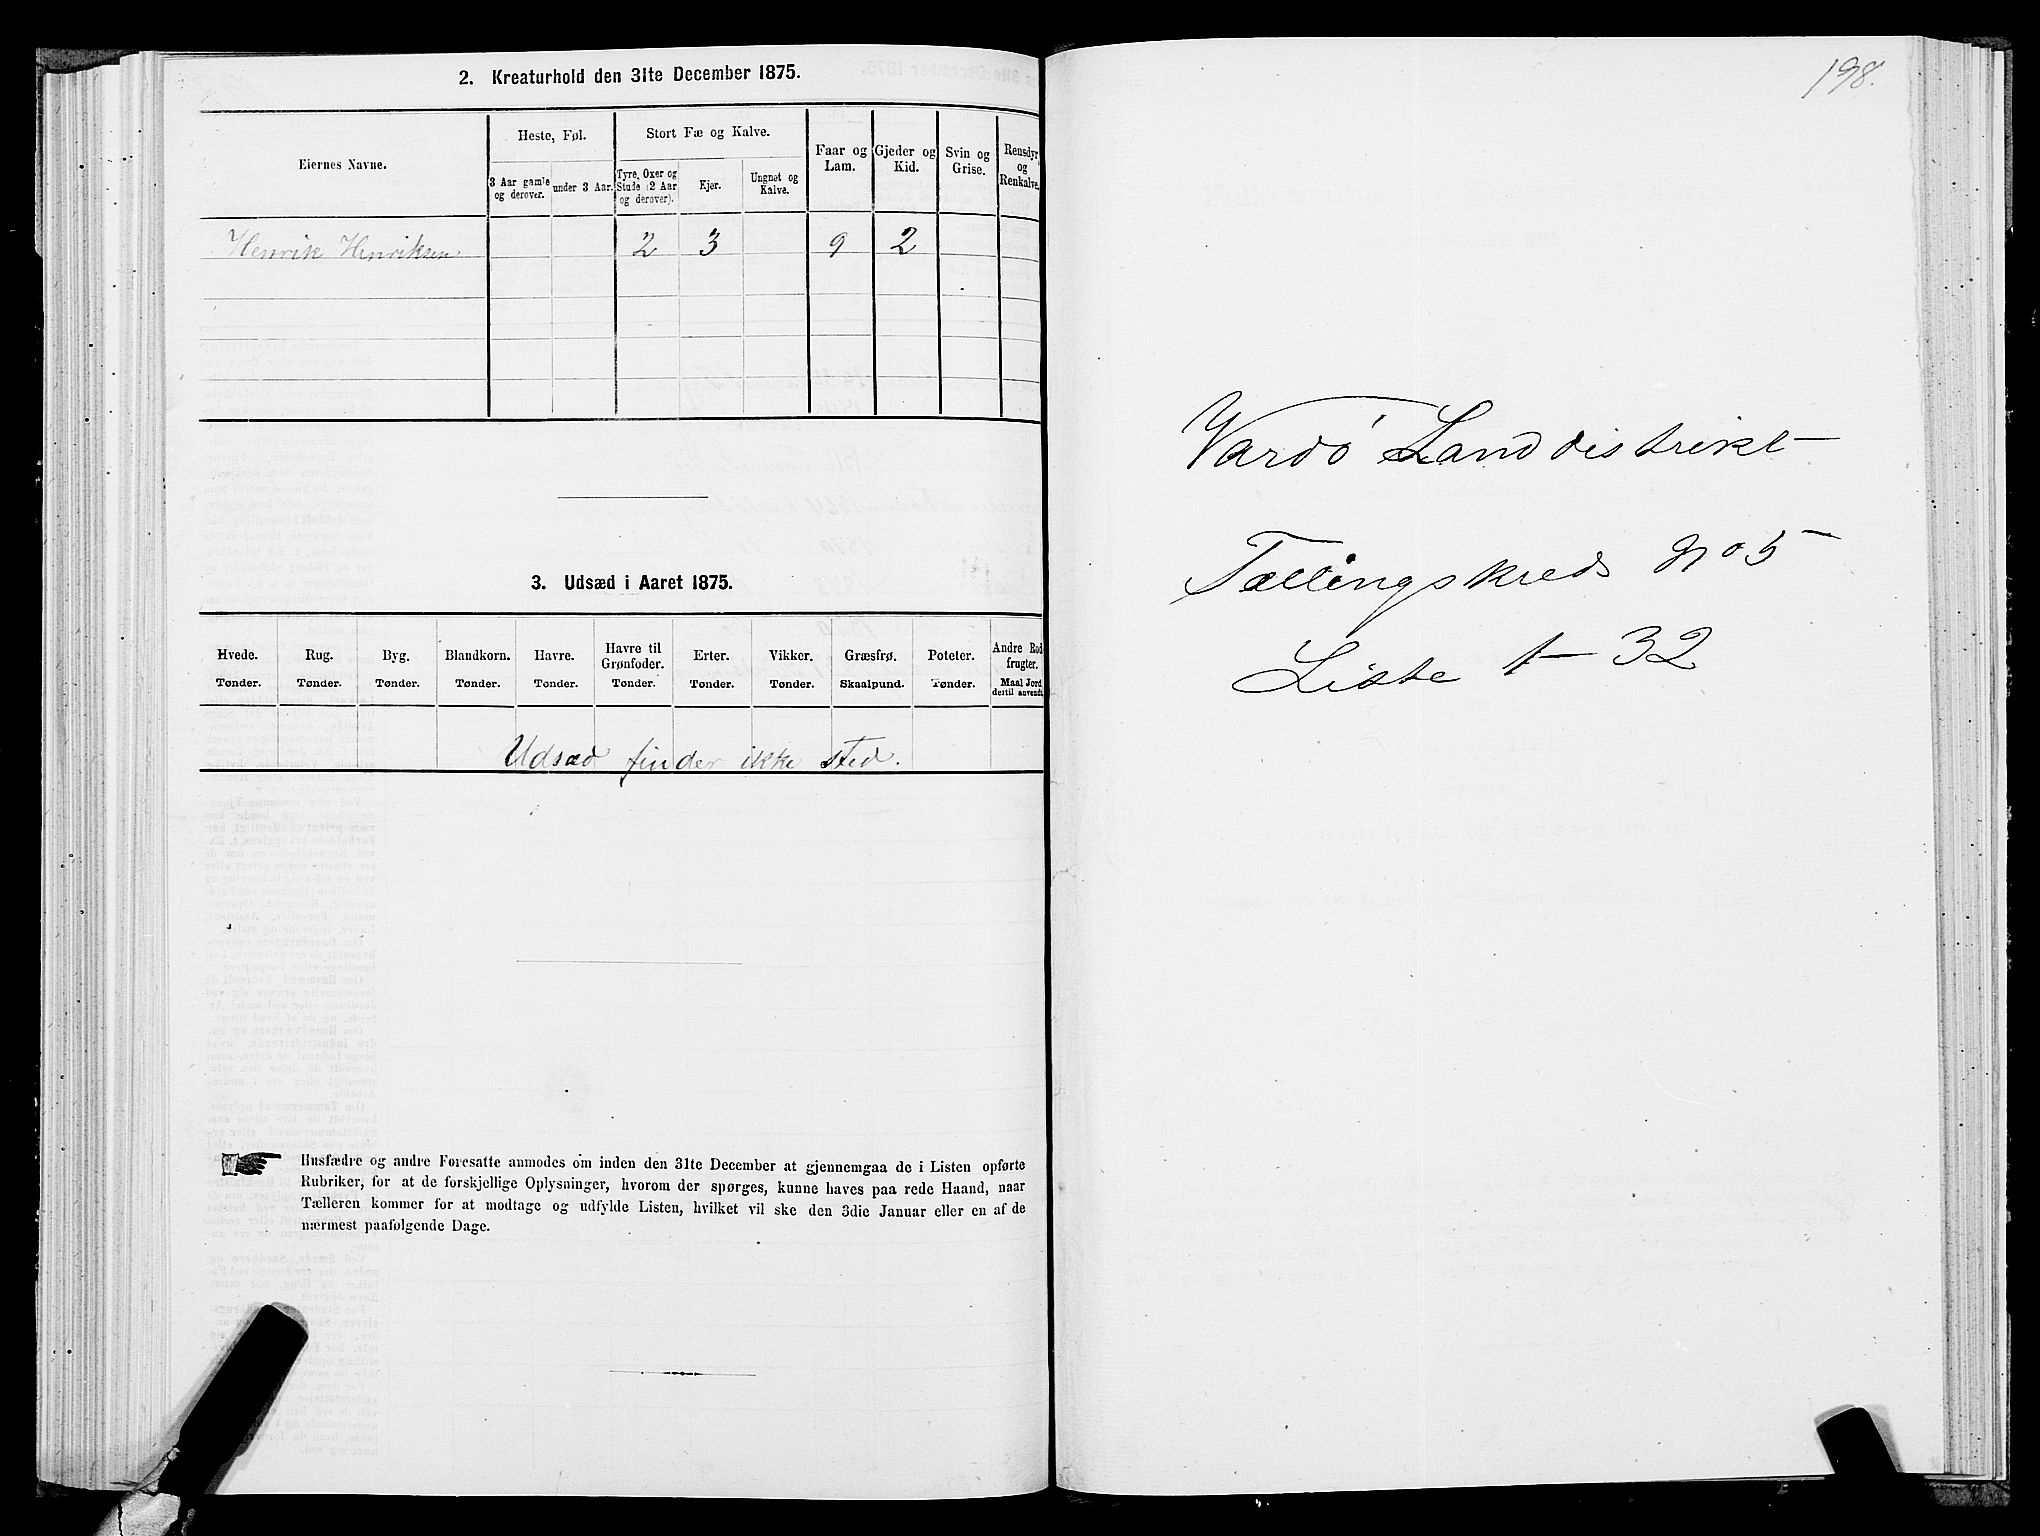 2. Kreaturhold den 31te December 1875.
Eiernes Navne.
Heste, Føl.
Stort Fæ og Kalve.
Faar og Lam.
Gjeder og Kid.
Svin og Grise.
Rensdyr og Renkalve.
3 Aar gamle og derover.
under 3 Aar.
Tyre, Oxer og Stude (2 Aar og derover).
Kjør.
Ungnøt og Kalve.
Henrik Henriksen 2 3 9 2
3. Udsæd i Aaret 1875.
Hvede. Rug. Byg. Blandkorn. Havre. Havre til Grønfoder. Erter. Vikker. Græsfrø. Poteter. Andre Rodfrugter.
Tønder. Tønder. Tønder. Tønder. Tønder. Tønder. Tønder. Tønder. Skaalpund. Tønder. Maal Jord dertil anvendt.
Udsæd finder ikke sted.
Husfædre og andre Foresatte anmodes om inden den 31te December at gjennemgaa de i Listen opførte
Rubriker, for at de forskjellige Oplysninger, hvorom der spørges, kunne haves paa rede Haand, naar
Tælleren kommer for at modtage og udfylde Listen, hvilket vil ske den 3die Januar eller en af de
nærmest paafølgende Dage.
198.
Vardø Landdistrikt
Tællingskreds No 5
Liste 1-32